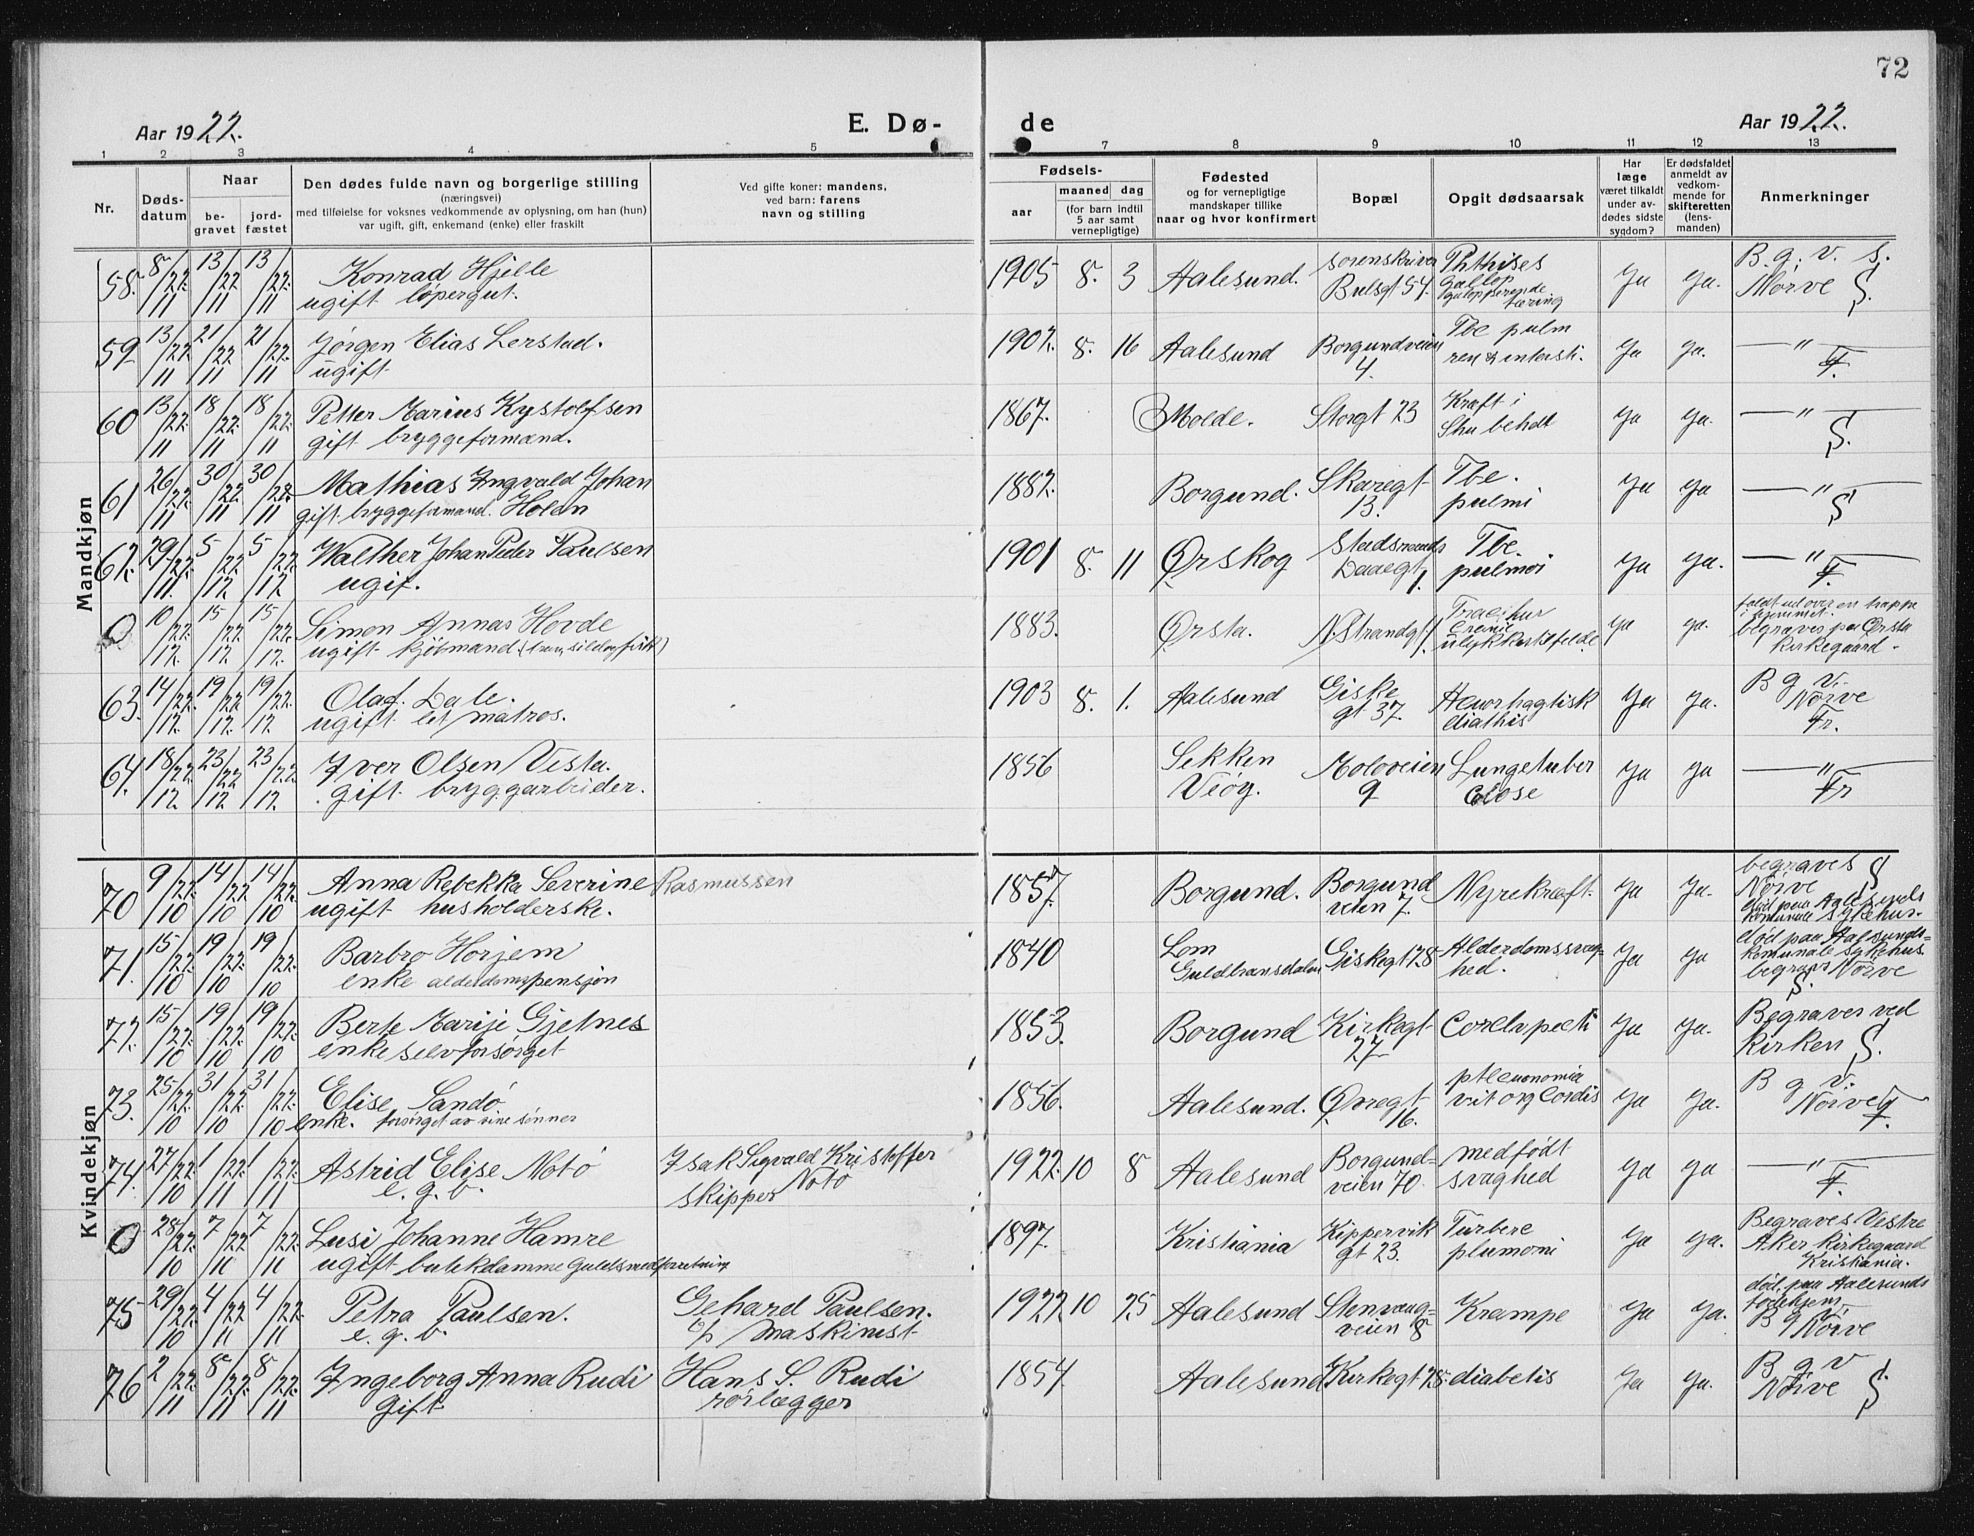 72
Aar 1922.
E. Dø-
de
Aar 1922.
1 2 3 4 5 7 8 9 10 11 12 13
Nr.
Døds-
datum
Naar
be-
gravet
jord-
fæstet
Den dødes fulde navn og borgerlige stilling
(næringsvei)
med tilføielse for voksnes vedkommende av oplysning, om han (hun)
var ugift, gift, enkemand (enke) eller fraskilt
Ved gifte koner: mandens,
ved barn: farens
navn og stilling
Fødsels-
aar
maaned dag
(for barn indtil
5 aar samt
vernepligtige)
Fødested
og for vernepligtige
mandskaper tillike
naar og hvor konfirmert
Bopæl
Opgit dødsaarsak
Har
læge
været tilkaldt
under av-
dødes sidste
sygdom?
Er dødsfaldet
anmeldt av
vedkom-
mende for
skifteretten
(lens-
manden)
Anmerkninger
Mandkjøn
58. 8/11 22. 13/11 22. 13/11 22. Konrad Hjelle
ugift løpergut.
1905 8. 3 Aalesund. Sorenskriver
Bulsgt 54. Phthises
galop
galopperende
tæring Ja Ja. B. g. v. S.
Nørve S.
59 13/11 22. 21/11 22. 21/11 22. Jørgen Elias Lerstad.
ugift
1902. 8. 16 Aalesund Borgundveien
4. Tbc pulm
ren & intesti. Ja Ja. —"—
F.
60 13/11 22. 18/11 22. 18/11 22. Petter Marius Kystolfsen
gift bryggeformand.
1867. Molde. Storgt 23 Kræft i
Ja Ja. —"—
S.
61 26/11 22. 30/11 22. 30/11 22. Mathias Ingvald Johan
gift bryggeformand. Holen
1882. Borgund. Skaregt
13. Tbc.
pulmi Ja Ja —"—
S
62. 29/11 22. 5/12 22. 5/12 22. Walther Johan Peder Paulsen
ugif.
1901 8. 11 Ørskog Stadsmands
Daaegt 1. Tbc.
pulmoi Ja Ja. —"—
F.
0 10/12 22. 15/12 22. 15/12 22. Simon Annas Hovde
ugift kjøbmand (træn, sild og fisk)
1883. Ørsta. N. Strandgt 1.
cranie
ulykkestilfelde Ja Ja. faldt ut over en trappe
i hjemmet.
begraves paa Ørsta
kirkegaard.
63. 14/12 22. 19/12 22. 19/12 22. Olaf Dale.
ugift let matros.
1903 8. 1. Aalesund Giske
gt 37. Hemorhagtisk
diathis Ja Ja. B g v.
Nørve
Fr.
64. 18/12 22. 23/12 22. 23/12 22. Iver Olsen Vesta.
gift bryggarbeider.
1856 Sekken
Veøy. Moloveien
9 Lungetuber
culose Ja Ja —"—
Fr
Kvindekjøn
70 9/10 22. 14/10 22. 14/10 22. Anna Rebekka Severine Rasmussen
ugift husholderske.
1857. Borgund. Borgund
veien 7. Nyrekræft. Ja Ja. begraves S
Nørve
død paa Aalesunds
komunale sykehus.
71. 15/10 22. 19/10 22. 19/10 22. Barbro Horjem
enke alderdomspensjon
1840 Lom
Guldbransdalen Giskegt 28. Alderdomssvag-
hed. Ja Ja død paa Aalesunds
komunale sykehus.
begraves Nørve
S.
72. 15/10 22. 19/10 22. 19/10 22. Berte Marije Gjelnes
enke selvforsørget
1853. Borgund Kirkegt
27 Ja Ja. Begraves ved
kirken S.
73. 25/10 22. 31/10 22. 31/10 22. Elise Sandö
enke. forsørget av sine sønner
1856. Aalesund. Øvregt
16. pneumonia
vit org Cordis Ja Ja. B g v.
Nørve
F.
74. 27/10 22. 1/11 22. 1/11 22. Astrid Elise Notö
e. g. b. Isak Sigvald Kristoffer
skipper Notö
1922. 10 8 Aalesund Borgund-
veien 70. medfødt
svaghed Ja Ja —"—
F.
0 28/10 22. 7/11 22 7/11 22. Lusi Johanne Hamre
ugift butikdamme guldsmedforretning
1897. Kristiania Kippervik
gt 23. Turbere
plumoni Ja Ja. Begraves Vestre
Aker kirkegaard
Kristiania.
75 29/10 22. 4/11 22 4/11 22. Petra Paulsen.
e. g. b. Gehard Paulsen.
maskinist
1922 10 25 Aalesund Stenvaag-
veien 8 Krampe Ja Ja. død paa Aalesunds
fødehjem
B g v.
Nørve
76 2/11 22. 8/11 22. 8/11 22. Ingeborg Anna Rudi
Gift Hans S. Rudi
rørlægger
1854 Aalesund Kirkegt 28. diabetis Ja Ja. B g v
Nørve S.